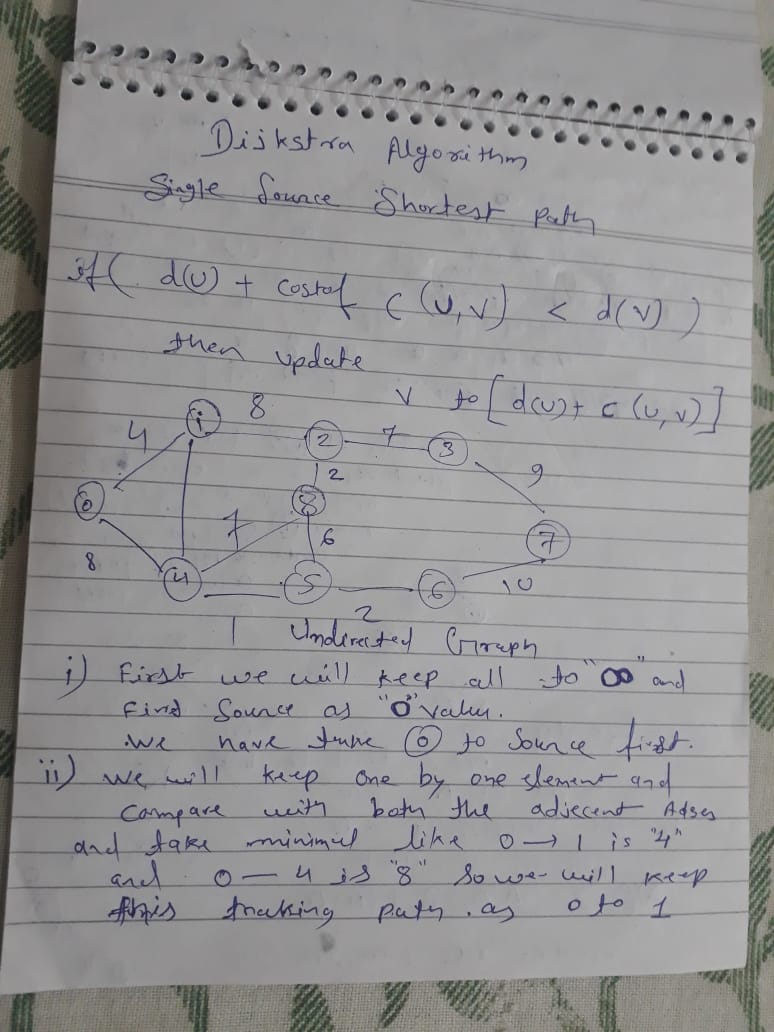 Dijkstra Algorithm
Single Source Shortest Path
if ( d(u) + cost of c (u, v) < d(v) )
then update
v to [ d(u) + c (u, v) ]
8
4 1 2 7 3
2 9
0 8
7 6 7
8 4 5 6 10
2
1 Undirected Graph
i) First we will keep all to "∞" and
Find Source as "0" value.
We have 0 to Source first.
ii) We will keep one by one element and
Compare with both the adjecent
and take minimul like 0 → 1 is "4"
and 0 — 4 is "8" So we will keep
this traking path as 0 to 1